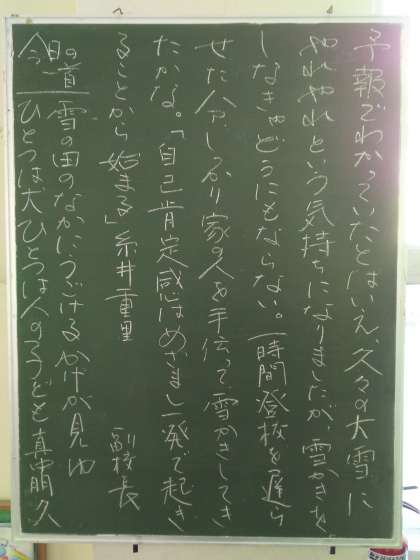 予報でわかっていたとはいえ、久々の大雪に
やれやれという気持ちになりましたが、雪かきを
しなきゃどうにもならない。一時間登校を遅ら
せた分、しっかり家の人を手伝って雪かきしてき
たかな。「自己肯定感はめざまし一発で起き
ることから始まる」糸井重里　副校長
今日の一首
雪の田のなかにうごけるかげが見ゆ
ひとつは犬ひとつは人のうごき 真中朋久